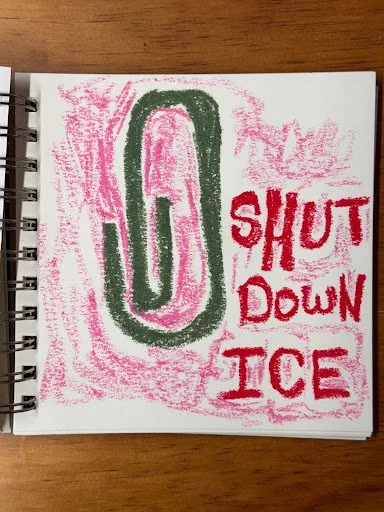 SHUT
DOWN
ICE